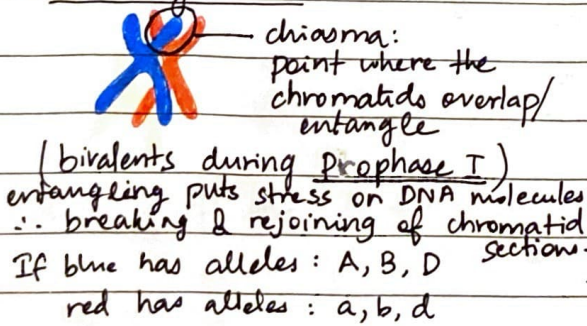 chiasma:
point where the
chromatids overlap/
entangle
(bivalents during Prophase I)
entangling puts stress on DNA molecules
∴ breaking & rejoining of chromatid
sections.
If blue has alleles : A, B, D
red has alleles : a, b, d